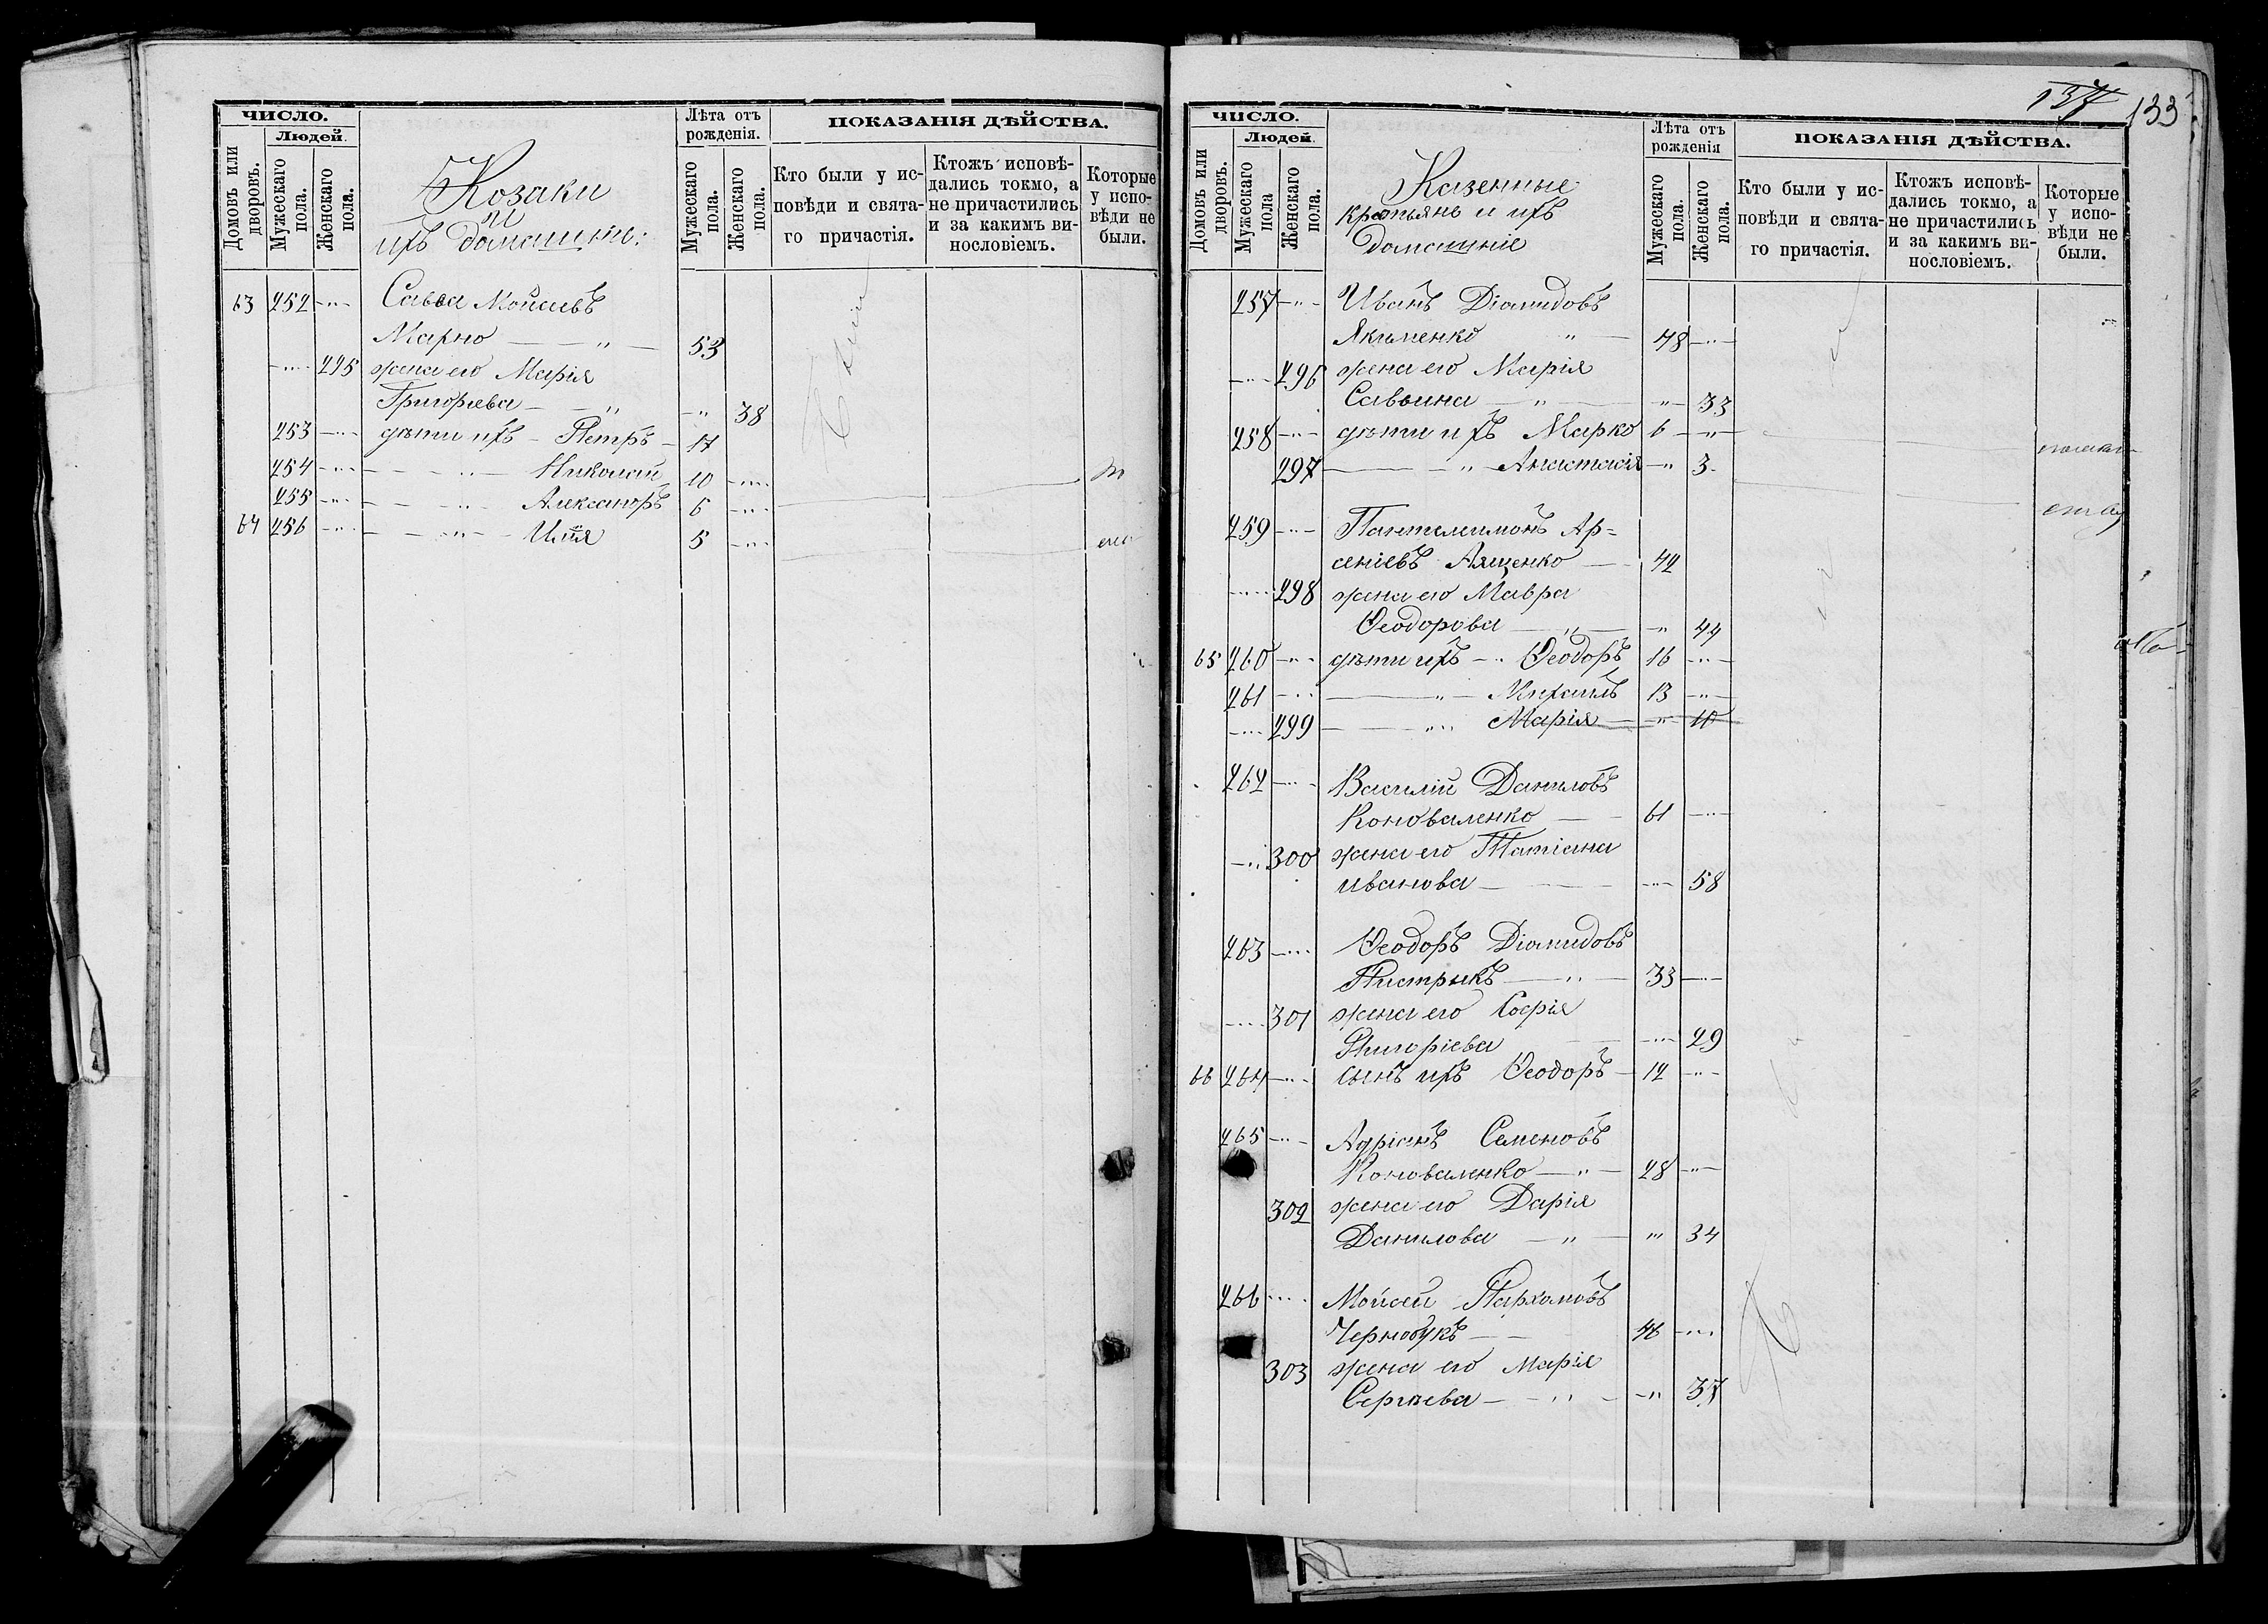 ЧИСЛО.
Людей.
Домовъ или дворовъ.
Мужескаго пола.
Женскаго пола.
Козаки
и
ихъ домашніе:
Лѣта отъ рожденія.
Мужескаго пола.
Женскаго пола.
ПОКАЗАНІЯ ДѢЙСТВА.
Кто были у ис-
повѣди и свята-
го причастія.
Ктожъ исповѣ-
дались токмо, а
не причастились
и за какимъ ви-
нословіемъ.
Которые
у испо-
вѣди не
были.
63 252 Савва Мойсеевъ
Марно 53
295 жена его Марія
Григорьева 38
253 дѣти ихъ Петръ 17
254 Николай 10
255 Александръ 6
64 256 Илія 5
133
ЧИСЛО.
Людей.
Домовъ или дворовъ.
Мужескаго пола
Женскаго пола.
Казенные
крестьяне и ихъ
домашніе
Лѣта отъ рожденія
Мужескаго пола.
Женскаго пола.
ПОКАЗАНІЯ ДѢЙСТВА.
Кто были у ис-
повѣди и свята-
го причастія.
Ктожъ исповѣ-
дались токмо, а
не причастились
и за какимъ ви-
нословіемъ.
Которые
у испо-
вѣди не
были.
257 Иванъ Діамидовъ
Якименко 48
296 жена его Марія
Саввина 33
258 дѣти ихъ Марко 6
297 Анастасія 3
259 Пантелимонъ Ар=
сеніевъ Ященко 42
298 жена его Мавра
Ѳеодорова 44
65 260 дѣти ихъ Ѳеодоръ 16
261 Михаилъ 13
299 Марія 10
262 Василій Даниловъ
Коноваленко 61
300 жена его Татіана
Иванова 58
263 Ѳеодоръ Діамидовъ
Пистрыкъ 33
301 жена его Софія
Григоріева 29
66 264 сынъ ихъ Ѳеодоръ 12
265 Адріанъ Семеновъ
Коноваленко 28
302 жена его Дарія
Данилова 34
266 Мойсей Пархомовъ
Чернобукъ 46
303 жена его Марія
Сергіева 37